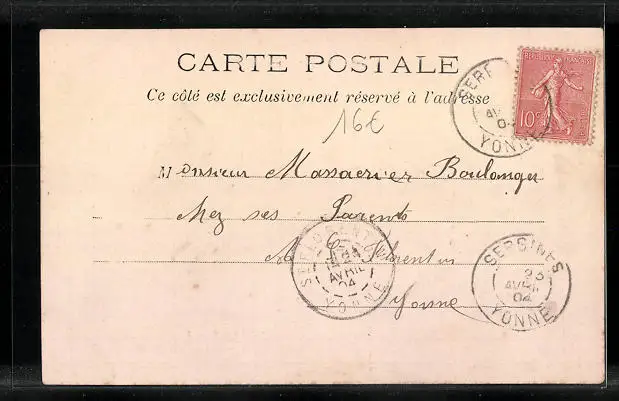 CARTE POSTALE
Ce côté est exclusivement réservé à l'adresse
16€
Monsieur Massacrier Boulanger
Chez ses Parents
Florentin
Yonne
SER
AVR
04
YONNE
REPUBLIQUE FRANÇAISE
10c
ST FLORENTIN
24
AVRIL
04
YONNE
SERGINES
23
AVRIL
04
YONNE